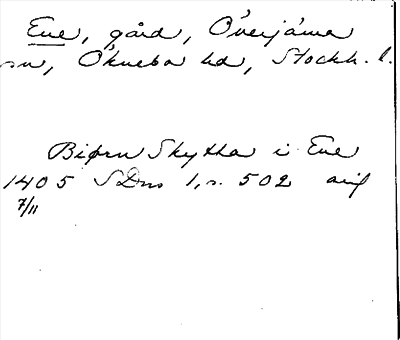 Eue, gård, Ö'verjä'rna
sn, Ö'knebo hd, Stockh. l.
Biørn Skytha i Eue
1405 SDns 1, s. 502 avf
7/11